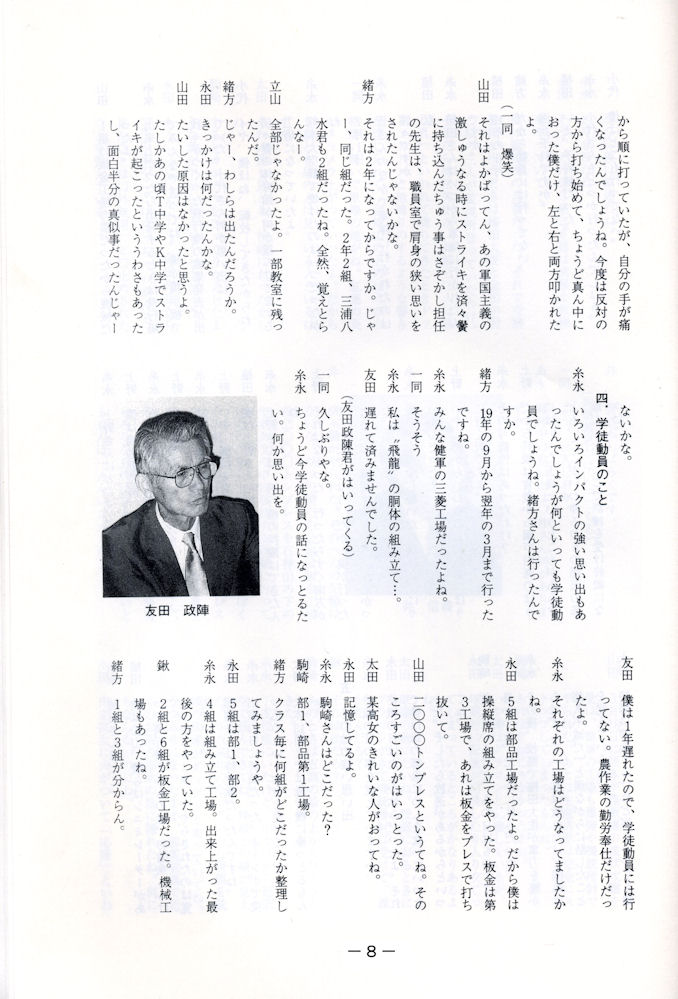 から順に打っていたが、自分の手が痛
くなったんでしょうね。今度は反対の
方から打ち始めて、ちょうど真ん中に
おった僕だけ、左と右と両方叩かれた
よ。
(一同 爆笑)
山田 それはよかばってん、あの軍国主義の
激しゅうなる時にストライキを済々黌
に持ち込んだちゅう事はさぞかし担任
の先生は、職員室で肩身の狭い思いを
されたんじゃないかな。
緒方 それは2年になってからですか。じゃ
ー、同じ組だった。2年2組、三浦八
水君も2組だったね。全然、覚えとら
んなー。
立山 全部じゃなかったよ。一部教室に残っ
たんだ。
緒方 じゃー、わしらは出たんだろうか。
永田 きっかけは何だったんかな。
山田 たいした原因はなかったと思うよ。
たしかあの頃T中学やK中学でストラ
イキが起こったといううわさもあった
し、面白半分の真似事だったんじゃー
ないかな。
四、学徒動員のこと
糸永 いろいろインパクトの強い思い出もあ
ったんでしょうが何といっても学徒動
員でしょうね。緒方さんは行ったんで
すか。
緒方 19年の9月から翌年の3月まで行った
ですね。
糸永 みんな健軍の三菱工場だったよね。
一同 そうそう
糸永 私は〝飛龍〟の胴体の組み立て…。
友田 遅れて済みませんでした。
(友田政陣君がはいってくる)
一同 久しぶりやな。
糸永 ちょうど今学徒動員の話になっとるた
い。何か思い出を。
友田 政陣
友田 僕は1年遅れたので、学徒動員には行
ってない。農作業の勤労奉仕だけだっ
たよ。
糸永 それぞれの工場はどうなってましたか
ね。
永田 5組は部品工場だったよ。だから僕は
操縦席の組み立てをやった。板金は第
3工場で、あれは板金をプレスで打ち
抜いて。
山田 二〇〇〇トンプレスというてね。その
ころすごいのがはいっとった。
太田 某高女のきれいな人がおってね。
永田 記憶してるよ。
糸永 駒崎さんはどこだった?
駒崎 部1、部品第1工場。
緒方 クラス毎に何組がどこだったか整理し
てみましょうや。
永田 5組は部1、部2。
糸永 4組は組み立て工場。出来上がった最
後の方をやっていた。
鍬 2組と6組が板金工場だった。機械工
場もあったね。
緒方 1組と3組が分からん。
— 8 —